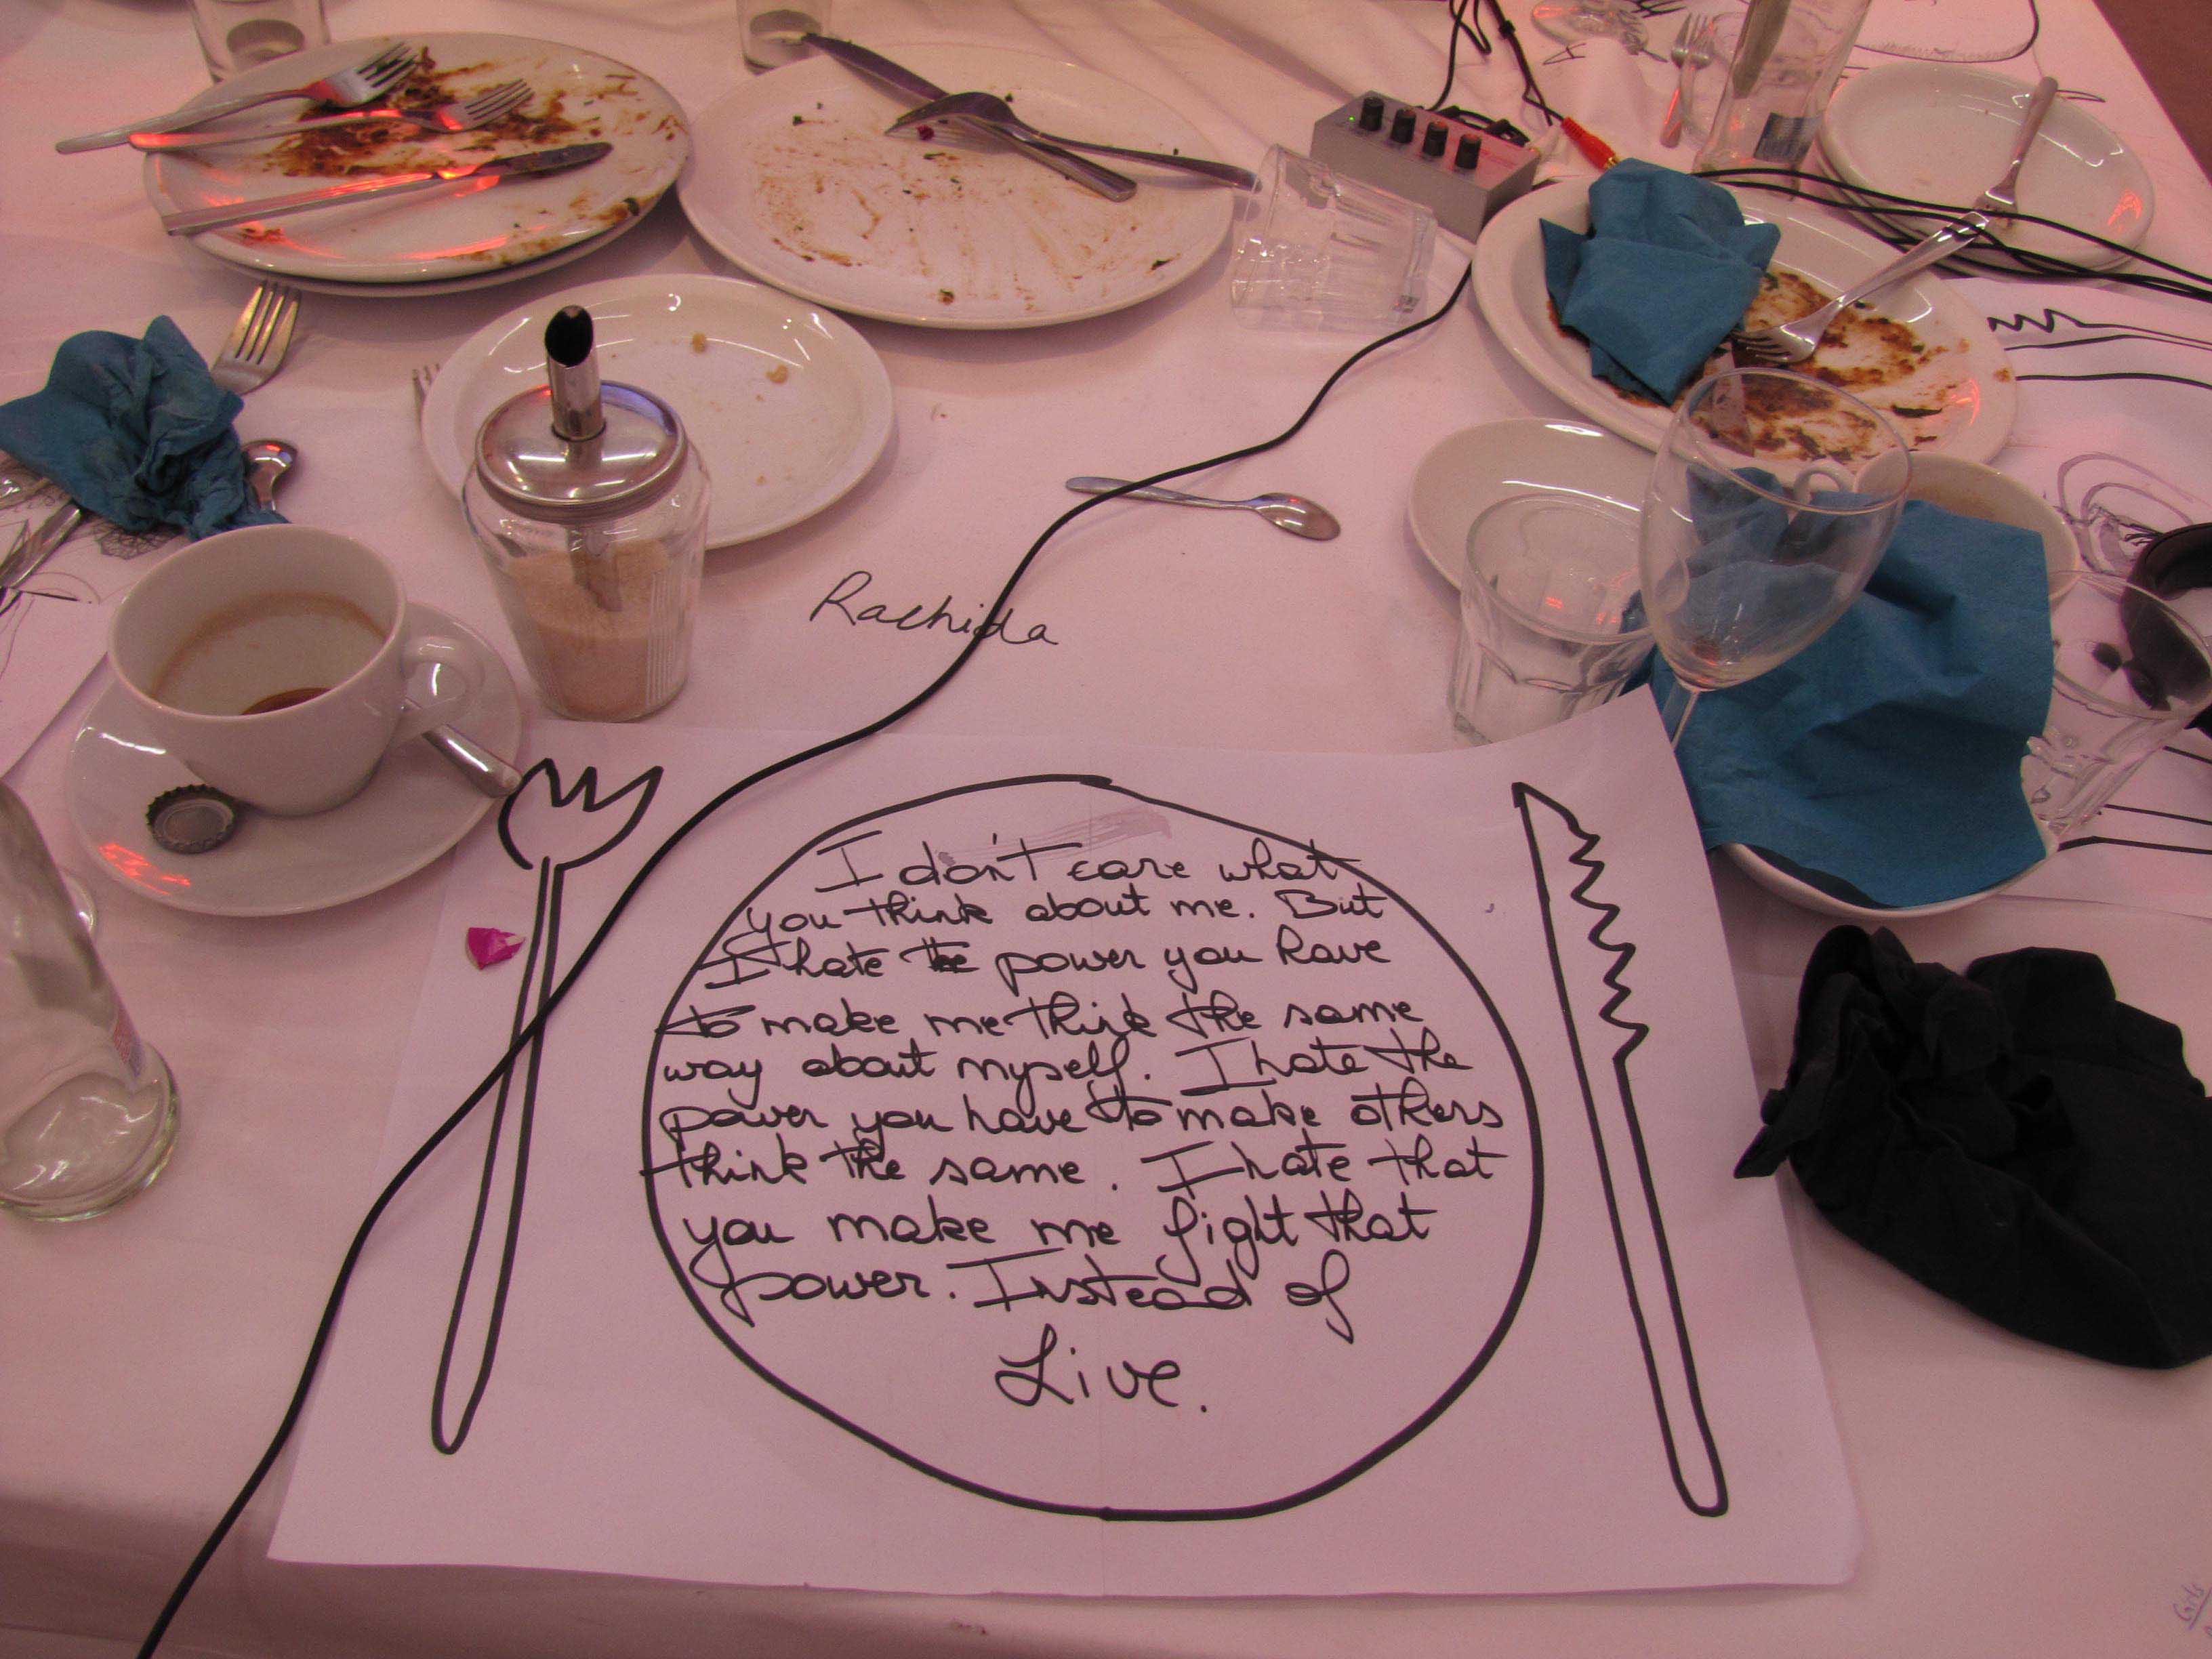 Rachida
I don't care what
you think about me. But
I hate the power you have
to make me think the same
way about myself. I hate the
power you have to make others
think the same. I hate that
you make me fight that
power. Instead of
Live.